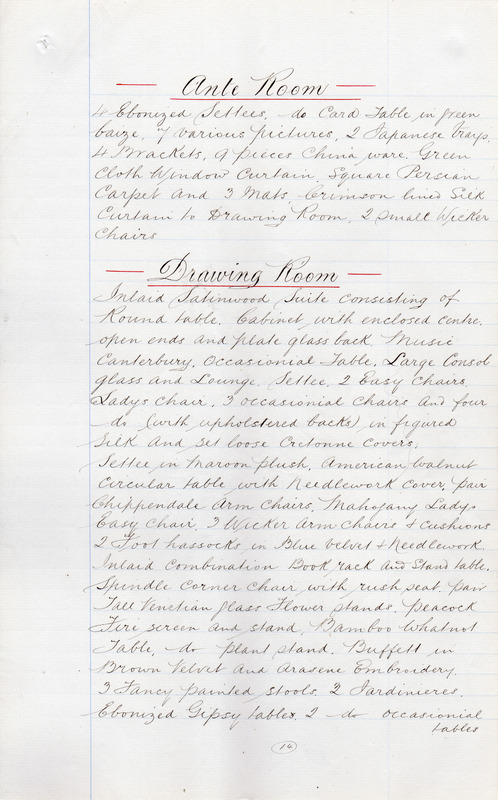 Ante Room
4 Ebonized Settees, do Card Table in green
baize, 7 various pictures, 2 Japanese trays.
4 Brackets, 9 pieces China ware. Green
Cloth Window Curtain. Square Persian
Carpet and 3 Mats. Crimson lined Silk
Curtain to Drawing Room. 2 small Wicker
Chairs
Drawing Room
Inlaid Satinwood Suite consisting of
Round table. Cabinet with enclosed centre,
open ends and plate glass back. Music
Canterbury. Occasionial Table. Large Consol
glass and Lounge. Settee. 2 Easy Chairs.
Ladys Chair. 3 occasionial chairs and four
do (with upholstered backs) in figured
Silk and set loose Cretonne covers.
Settee in Maroon plush. American Walnut
Circular table with Needlework cover, pair
Chippendale Arm Chairs. Mahogany Ladys
Easy Chair. 3 Wicker Arm Chairs & Cushions
2 Foot hassocks in Blue velvet & Needlework.
Inlaid Combination Book rack and Stand table.
Spindle Corner Chair with rush seat. Pair
Tall Venetian glass Flower stands. Peacock
Fire screen and stand. Bamboo Whatnot
Table, do plant stand. Buffett in
Brown Velvet and Arasene Embroidery.
3 Fancy painted stools. 2 Jardinieres.
Ebonized Gipsy tables. 2 do occasionial
tables
14